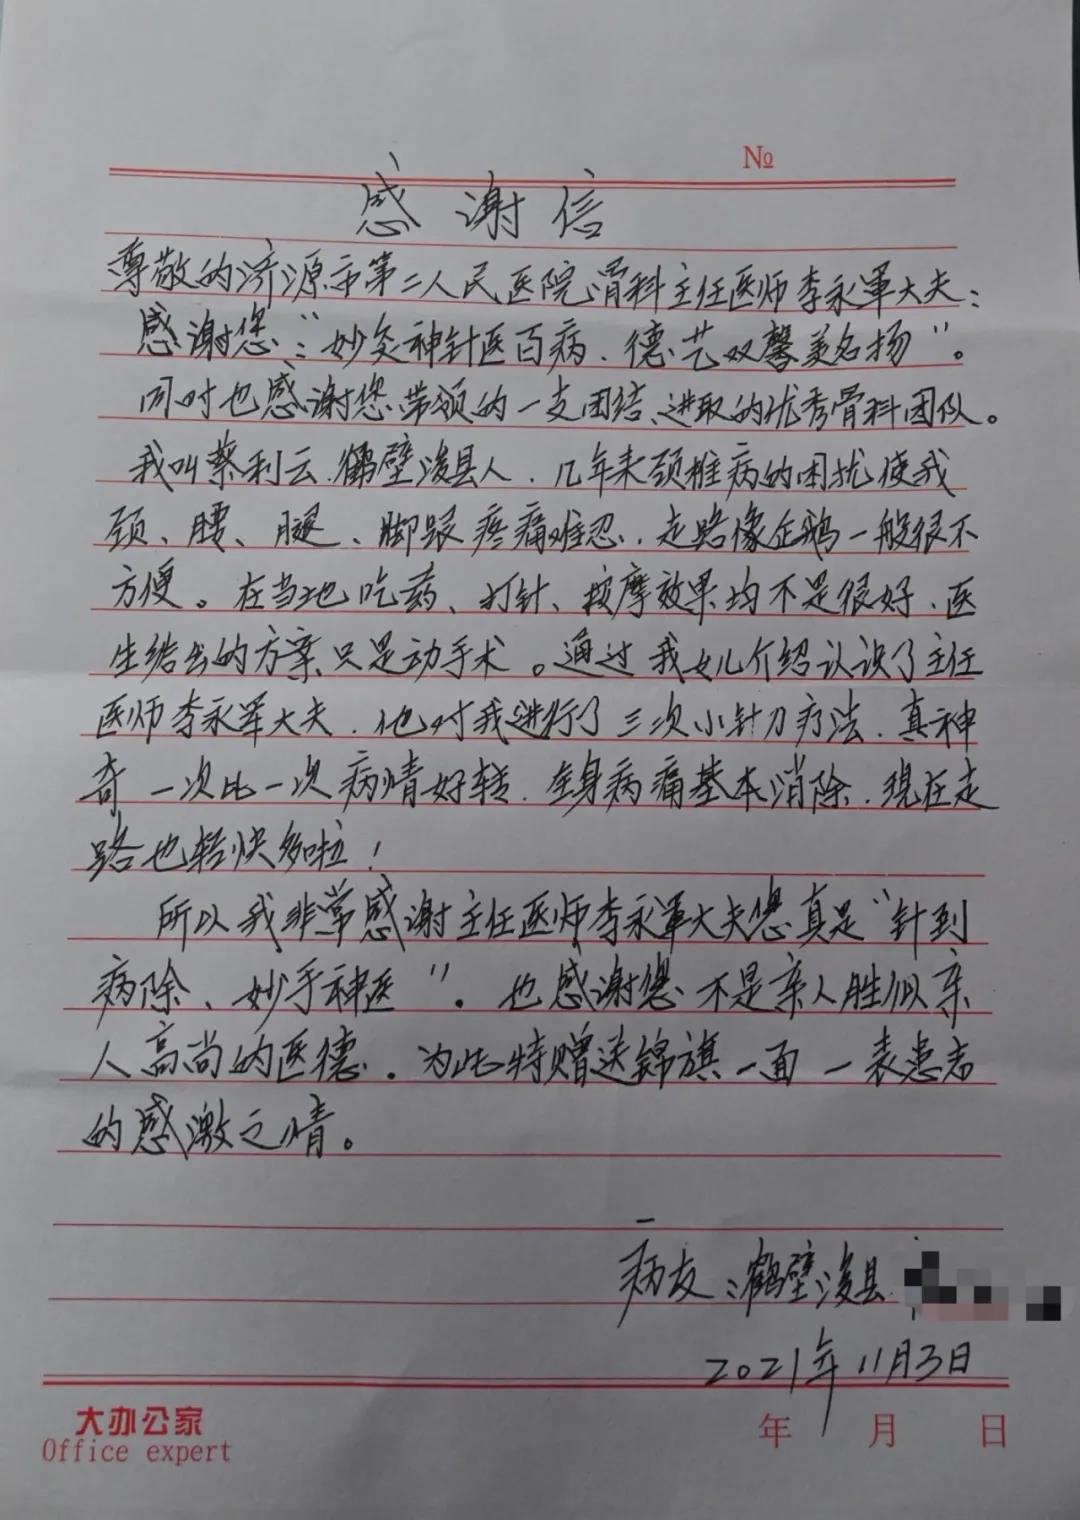 №
感谢信
尊敬的济源市第二人民医院骨科主任医师李永軍大夫：
感谢您：“妙灸神针医百病、德艺双馨美名扬”。
同时也感谢您带领的一支团结、进取的优秀骨科团队。
我叫蔡利云，鹤壁浚县人，几年来颈椎病的困扰使我
颈、腰、腿、脚跟疼痛难忍，走路像企鹅一般很不
方便。在当地吃药、打针、按摩效果均不是很好，医
生给出的方案只是动手术。通过我女儿介绍认识了主任
医师李永军大夫，他对我进行了三次小针刀疗法，真神
奇一次比一次病情好转，全身病痛基本消除，现在走
路也轻快多啦！
所以我非常感谢主任医师李永軍大夫您真是“针到
病除、妙手神医”。也感谢您不是亲人胜似亲
人高尚的医德。为此特赠送锦旗一面一表患者
的感激之情。
病友：鹤壁浚县
2021年11月3日
年 月 日
大办公家
Office expert